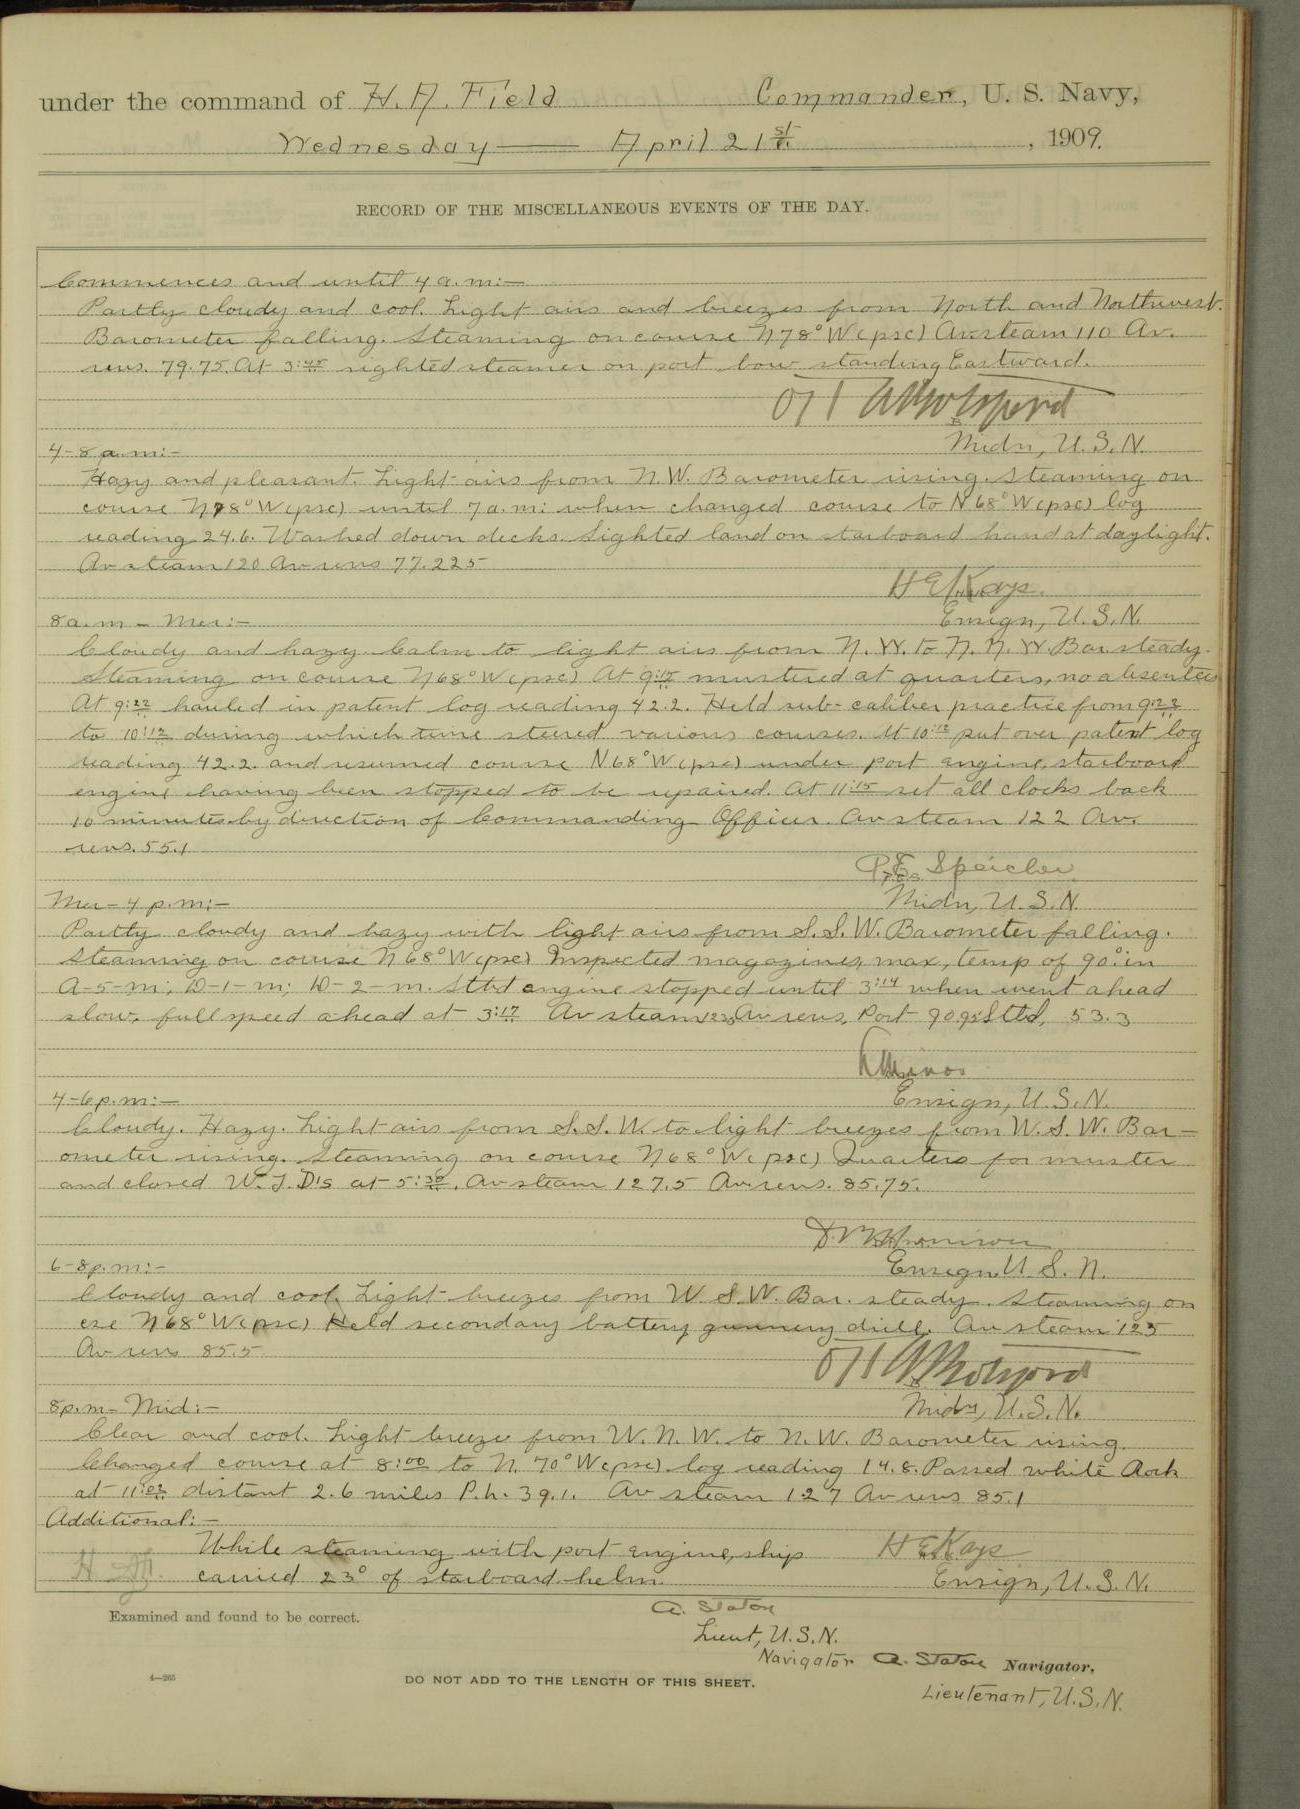 under the command of H. A. Field Commander, U. S. Navy,
Wednesday — April 21st, 1909.
RECORD OF THE MISCELLANEOUS EVENTS OF THE DAY.
Commences and until 4 a.m:-
Partly cloudy and cool. Light airs and breezes from North and Northwest.
Barometer falling. Steaming on course N 78° W (psc) Av. steam 110 Av.
revs. 79.75. At 3:45 sighted steamer on port bow standing Eastward.
Midn, U.S.N.
4-8 a.m:-
Hazy and pleasant. Light airs from N.W. Barometer rising. Steaming on
course N 78° W (psc) until 7 a.m: when changed course to N 68° W (psc) log
reading 24.6. Washed down decks. Sighted land on starboard hand at daylight.
Av steam 120 Av revs 77.225
H E Kays
Ensign, U.S.N.
8 a.m - Mer:-
Cloudy and hazy. Calm to light airs from N. W. to N. N. W. Bar. steady.
Steaming on course N 68° W (psc) At 9:15 mustered at quarters, no absentees
At 9:22 hauled in patent log reading 42.2. Held sub-caliber practice from 9:23
to 10:12 during which time steered various courses. At 10:12 put over patent log
reading 42.2. and resumed course N 68° W (psc) under port engine, starboard
engine having been stopped to be repaired. At 11:15 set all clocks back
10 minutes by direction of Commanding Officer. Av steam 122 Av.
revs. 55.1
P. E. Speicher
Midn, U.S.N.
Mer - 4 p.m:-
Partly cloudy and hazy with light airs from S.S.W. Barometer falling.
Steaming on course N 68° W (psc) Inspected magazines, max, temp of 90° in
A-5-m; D-1-m; D-2-m. Stbd engine stopped until 3:14 when went ahead
slow, full speed ahead at 3:17 Av steam 123 Av revs, Port 90.95 Stbd, 53.3
Ensign, U.S.N.
4-6 p.m:-
Cloudy. Hazy. Light airs from S.S.W. to light breezes from W.S.W. Bar-
ometer rising. Steaming on course N 68° W (psc) Quarters for muster
and closed W.T.D's at 5:30. Av steam 127.5 Av revs. 85.75.
Ensign U.S.N.
6-8 p.m:-
Cloudy and cool. Light breezes from W.S.W. Bar. steady. Steaming on
cse N 68° W (psc) Held secondary battery gunnery drill. Av steam 125
Av revs 85.5
Midn, U.S.N.
8 p.m - Mid:-
Clear and cool. Light breeze from W.N.W. to N.W. Barometer rising.
Changed course at 8:00 to N. 70° W (psc) log reading 14.8. Passed white Rock
at 11:02 distant 2.6 miles P.L. 39.1. Av steam 127 Av revs 85.1
Additional:-
While steaming with port engine, ship
carried 23° of starboard helm.
H E Kays
Ensign, U.S.N.
Examined and found to be correct.
A. Staton
Lieut, U.S.N.
Navigator
A. Staton Navigator.
Lieutenant, U.S.N.
4—265
DO NOT ADD TO THE LENGTH OF THIS SHEET.